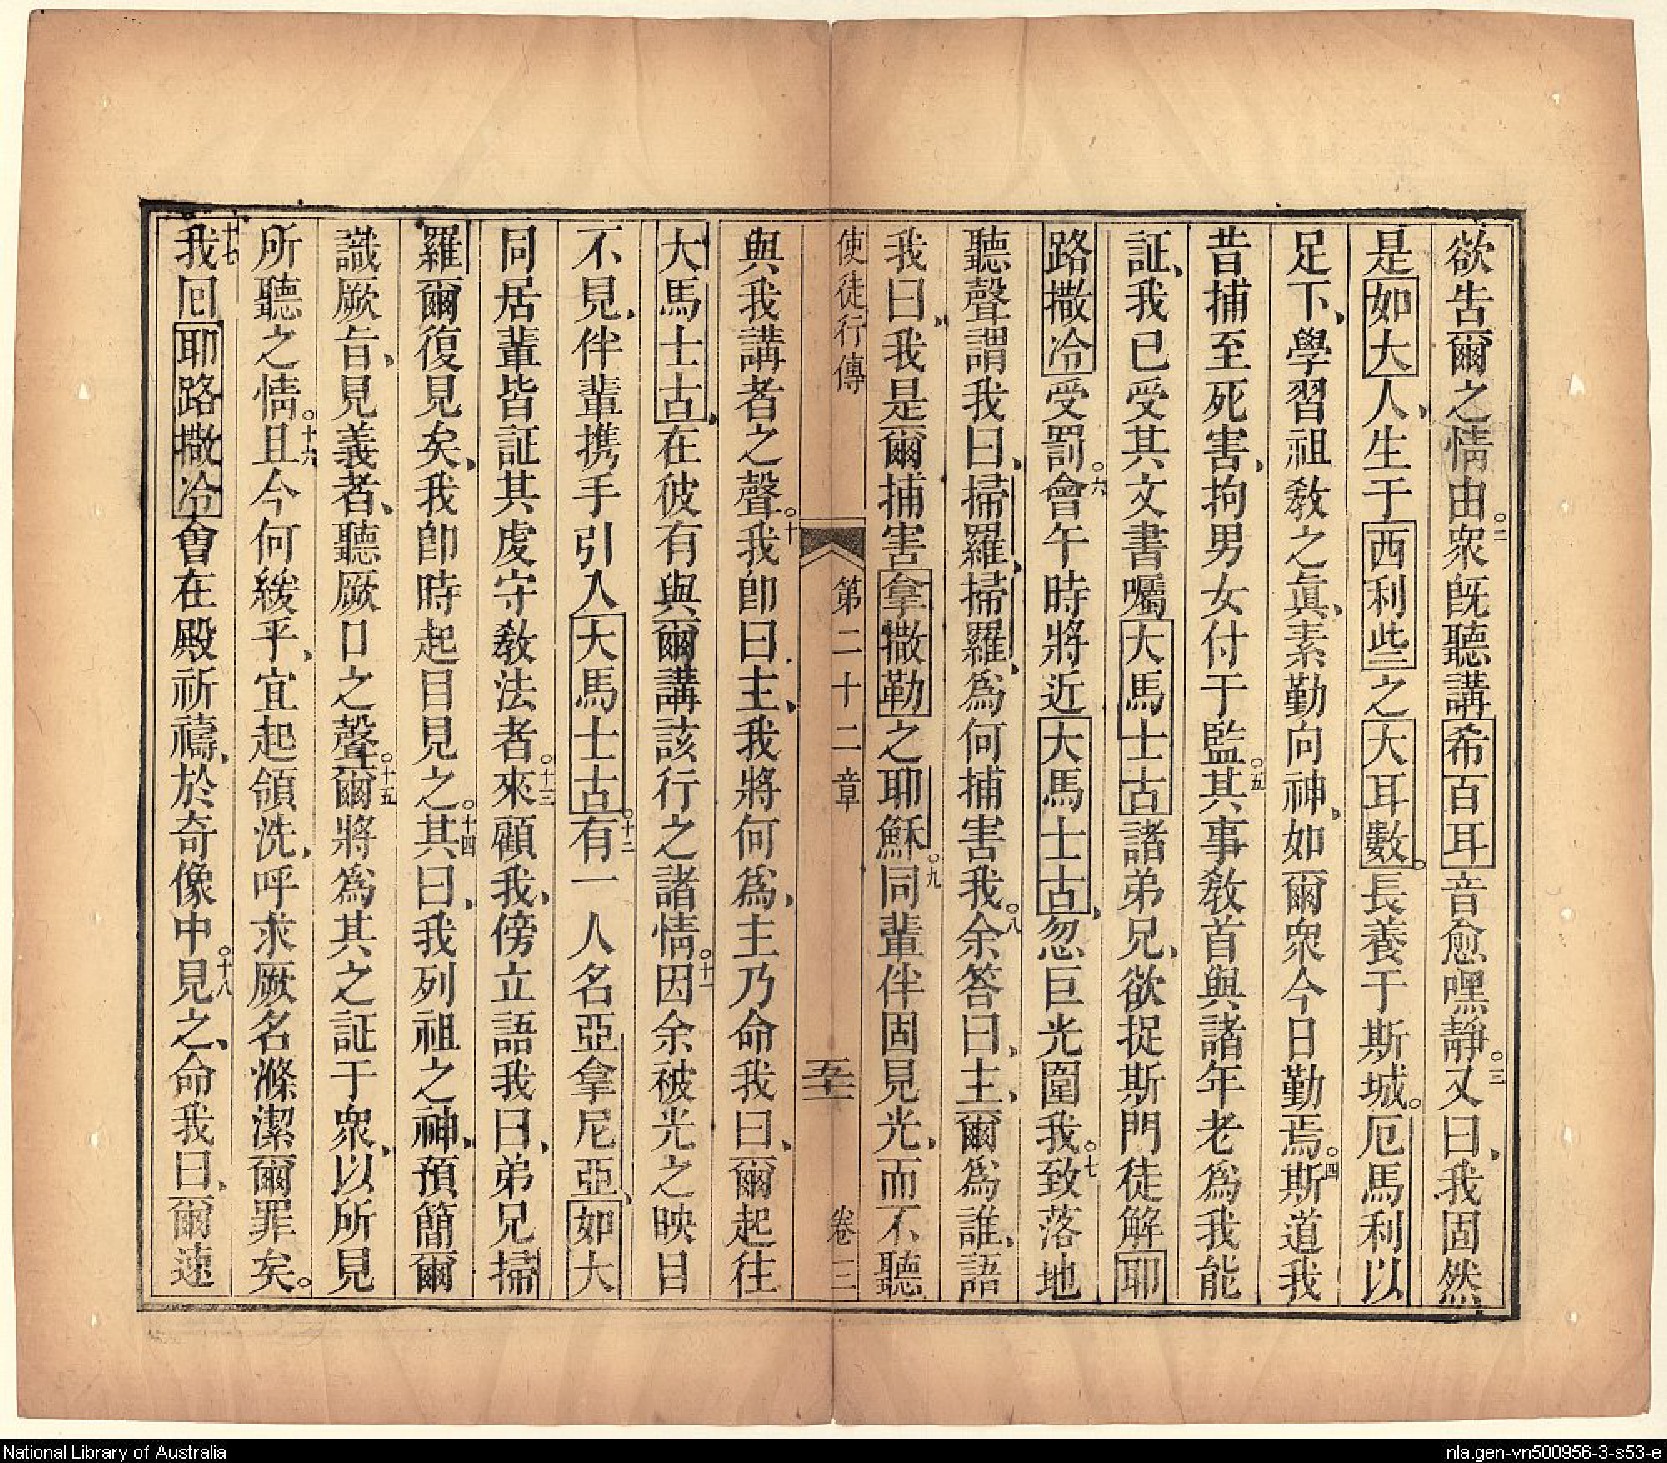 欲告爾之情由。二衆既聽講希百耳音愈嘿靜。三又曰、我固然
是如大人、生于西利些之大耳數。長養于斯城。厄馬利以
足下、學習祖教之眞、素勤向神、如爾衆今日勤焉。四斯道我
昔捕至死害、拘男女付于監。五其事教首與諸年老爲我能
証、我已受其文書囑大馬士古諸弟兄、欲捉斯門徒解耶
路撒冷受罰。六會午時將近大馬士古、忽巨光圍我。七致落地
聽聲謂我曰、掃羅、掃羅、爲何捕害我。八余答曰、主、爾爲誰、語
我曰、我是爾捕害拿撒勒之耶穌。九同輩伴固見光、而不聽
使徒行傳 第二十二章 五十二 卷三
與我講者之聲。十我即曰、主、我將何爲、主乃命我曰、爾起往
大馬士古、在彼有與爾講該行之諸情。十一因余被光之映目
不見、伴輩攜手引入大馬士古。十二有一人名亞拿尼亞、如大
同居輩皆証其虔守教法者。十三來顧我、傍立語我曰、弟兄掃
羅爾復見矣、我即時起目見之。十四其曰、我列祖之神、預簡爾
識厥旨、見義者、聽厥口之聲。十五爾將爲其之証于衆、以所見
所聽之情。十六且今何緩乎、宜起領洗、呼求厥名滌潔爾罪矣。
十七我回耶路撒冷會在殿祈禱、於奇像中。十八見之、命我曰、爾速
National Library of Australia
nla.gen-vn500956-3-s53-e